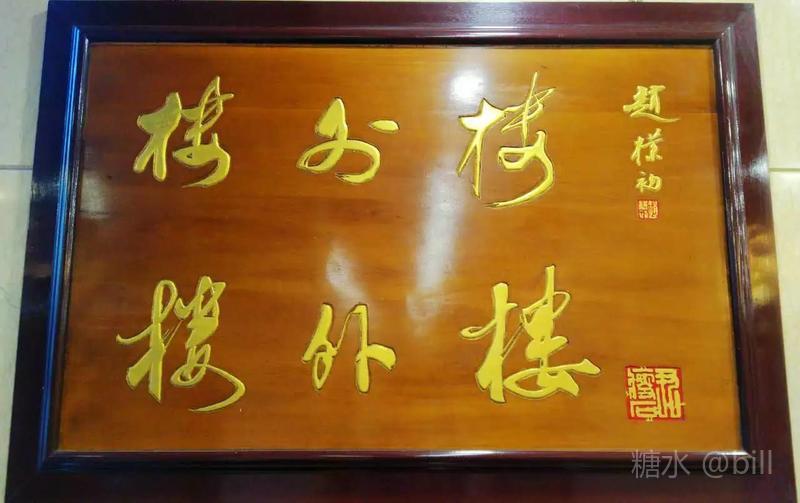 楼外楼
楼外楼
趙樸初
糖水 @bill